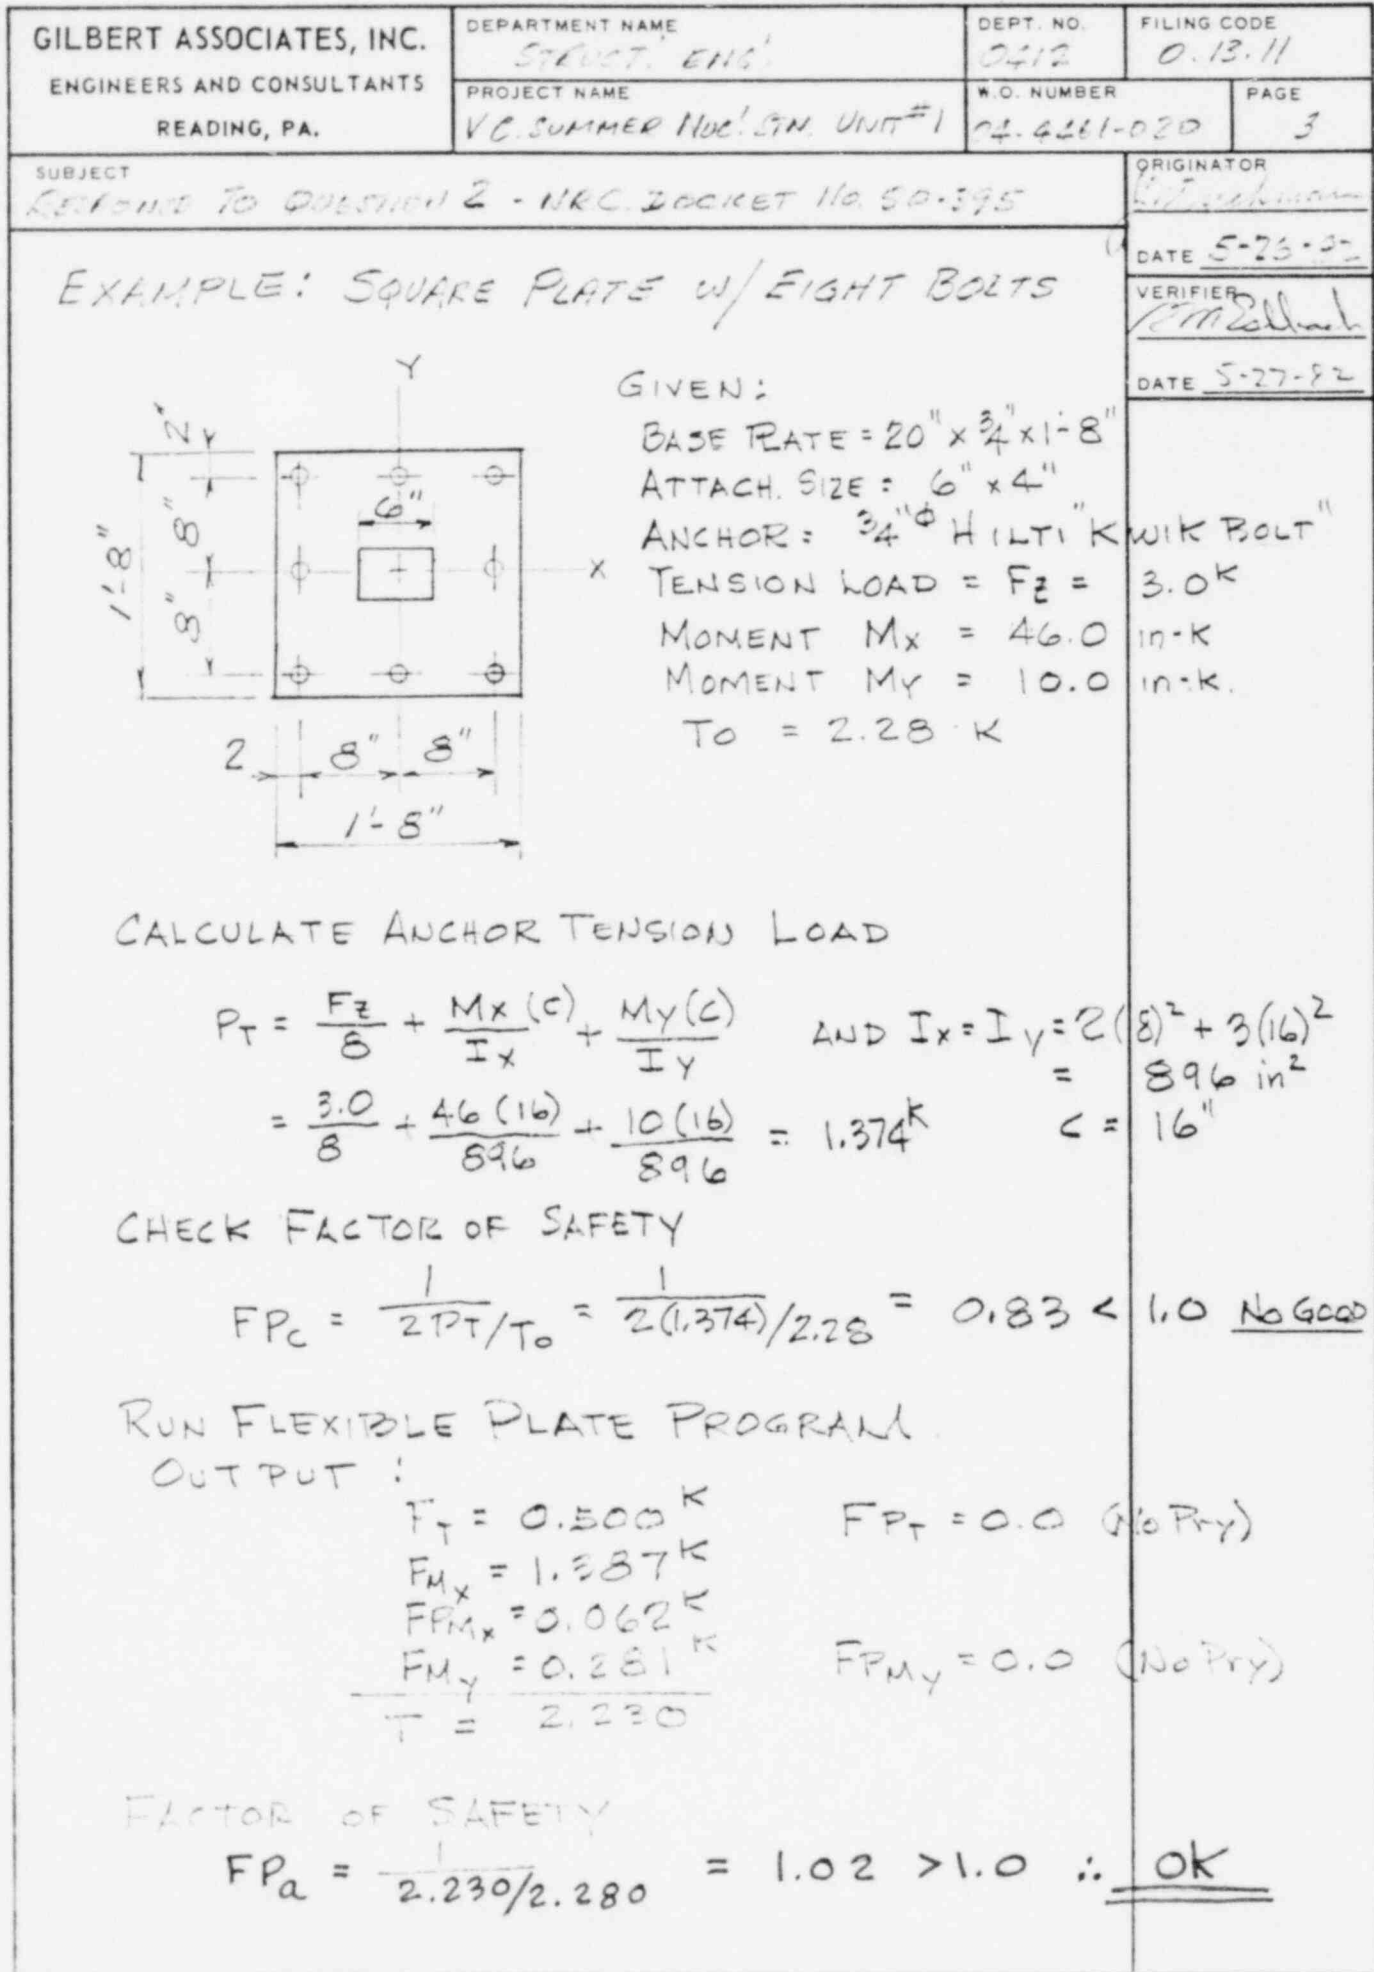 GILBERT ASSOCIATES, INC.
ENGINEERS AND CONSULTANTS
READING, PA.
DEPARTMENT NAME
STRUCT. ENG.
DEPT. NO.
0412
FILING CODE
0.13.11
PROJECT NAME
V.C. SUMMER NUC. STN. UNIT #1
W.O. NUMBER
04-4461-020
PAGE
3
SUBJECT
TO QUESTION 2 - NRC DOCKET NO. 50-395
ORIGINATOR
DATE 5-23-82
VERIFIER
DATE 5-27-82
EXAMPLE: SQUARE PLATE W/ EIGHT BOLTS
Y
2"
8"
8"
1'-8"
6"
X
2
8"
8"
1'-8"
GIVEN:
BASE PLATE = 20" x 3/4" x 1'-8"
ATTACH. SIZE = 6" x 4"
ANCHOR: 3/4"φ HILTI "KWIK BOLT"
TENSION LOAD = Fz = 3.0K
MOMENT Mx = 46.0 in-K
MOMENT My = 10.0 in-K.
To = 2.28 K
CALCULATE ANCHOR TENSION LOAD
PT = Fz/8 + Mx(c)/Ix + My(c)/Iy AND Ix = Iy = 2(8)² + 3(16)²
= 896 in²
= 3.0/8 + 46(16)/896 + 10(16)/896 = 1.374K c = 16"
CHECK FACTOR OF SAFETY
FPc = 1/2PT/To = 1/2(1.374)/2.28 = 0.83 < 1.0 NO GOOD
RUN FLEXIBLE PLATE PROGRAM
OUTPUT:
FT = 0.500K FPT = 0.0 (No Pry)
FMx = 1.387K
FPMx = 0.062K
FMy = 0.281K FPMy = 0.0 (No Pry)
T = 2.230
FACTOR OF SAFETY
FPa = 1/2.230/2.280 = 1.02 > 1.0 ∴ OK